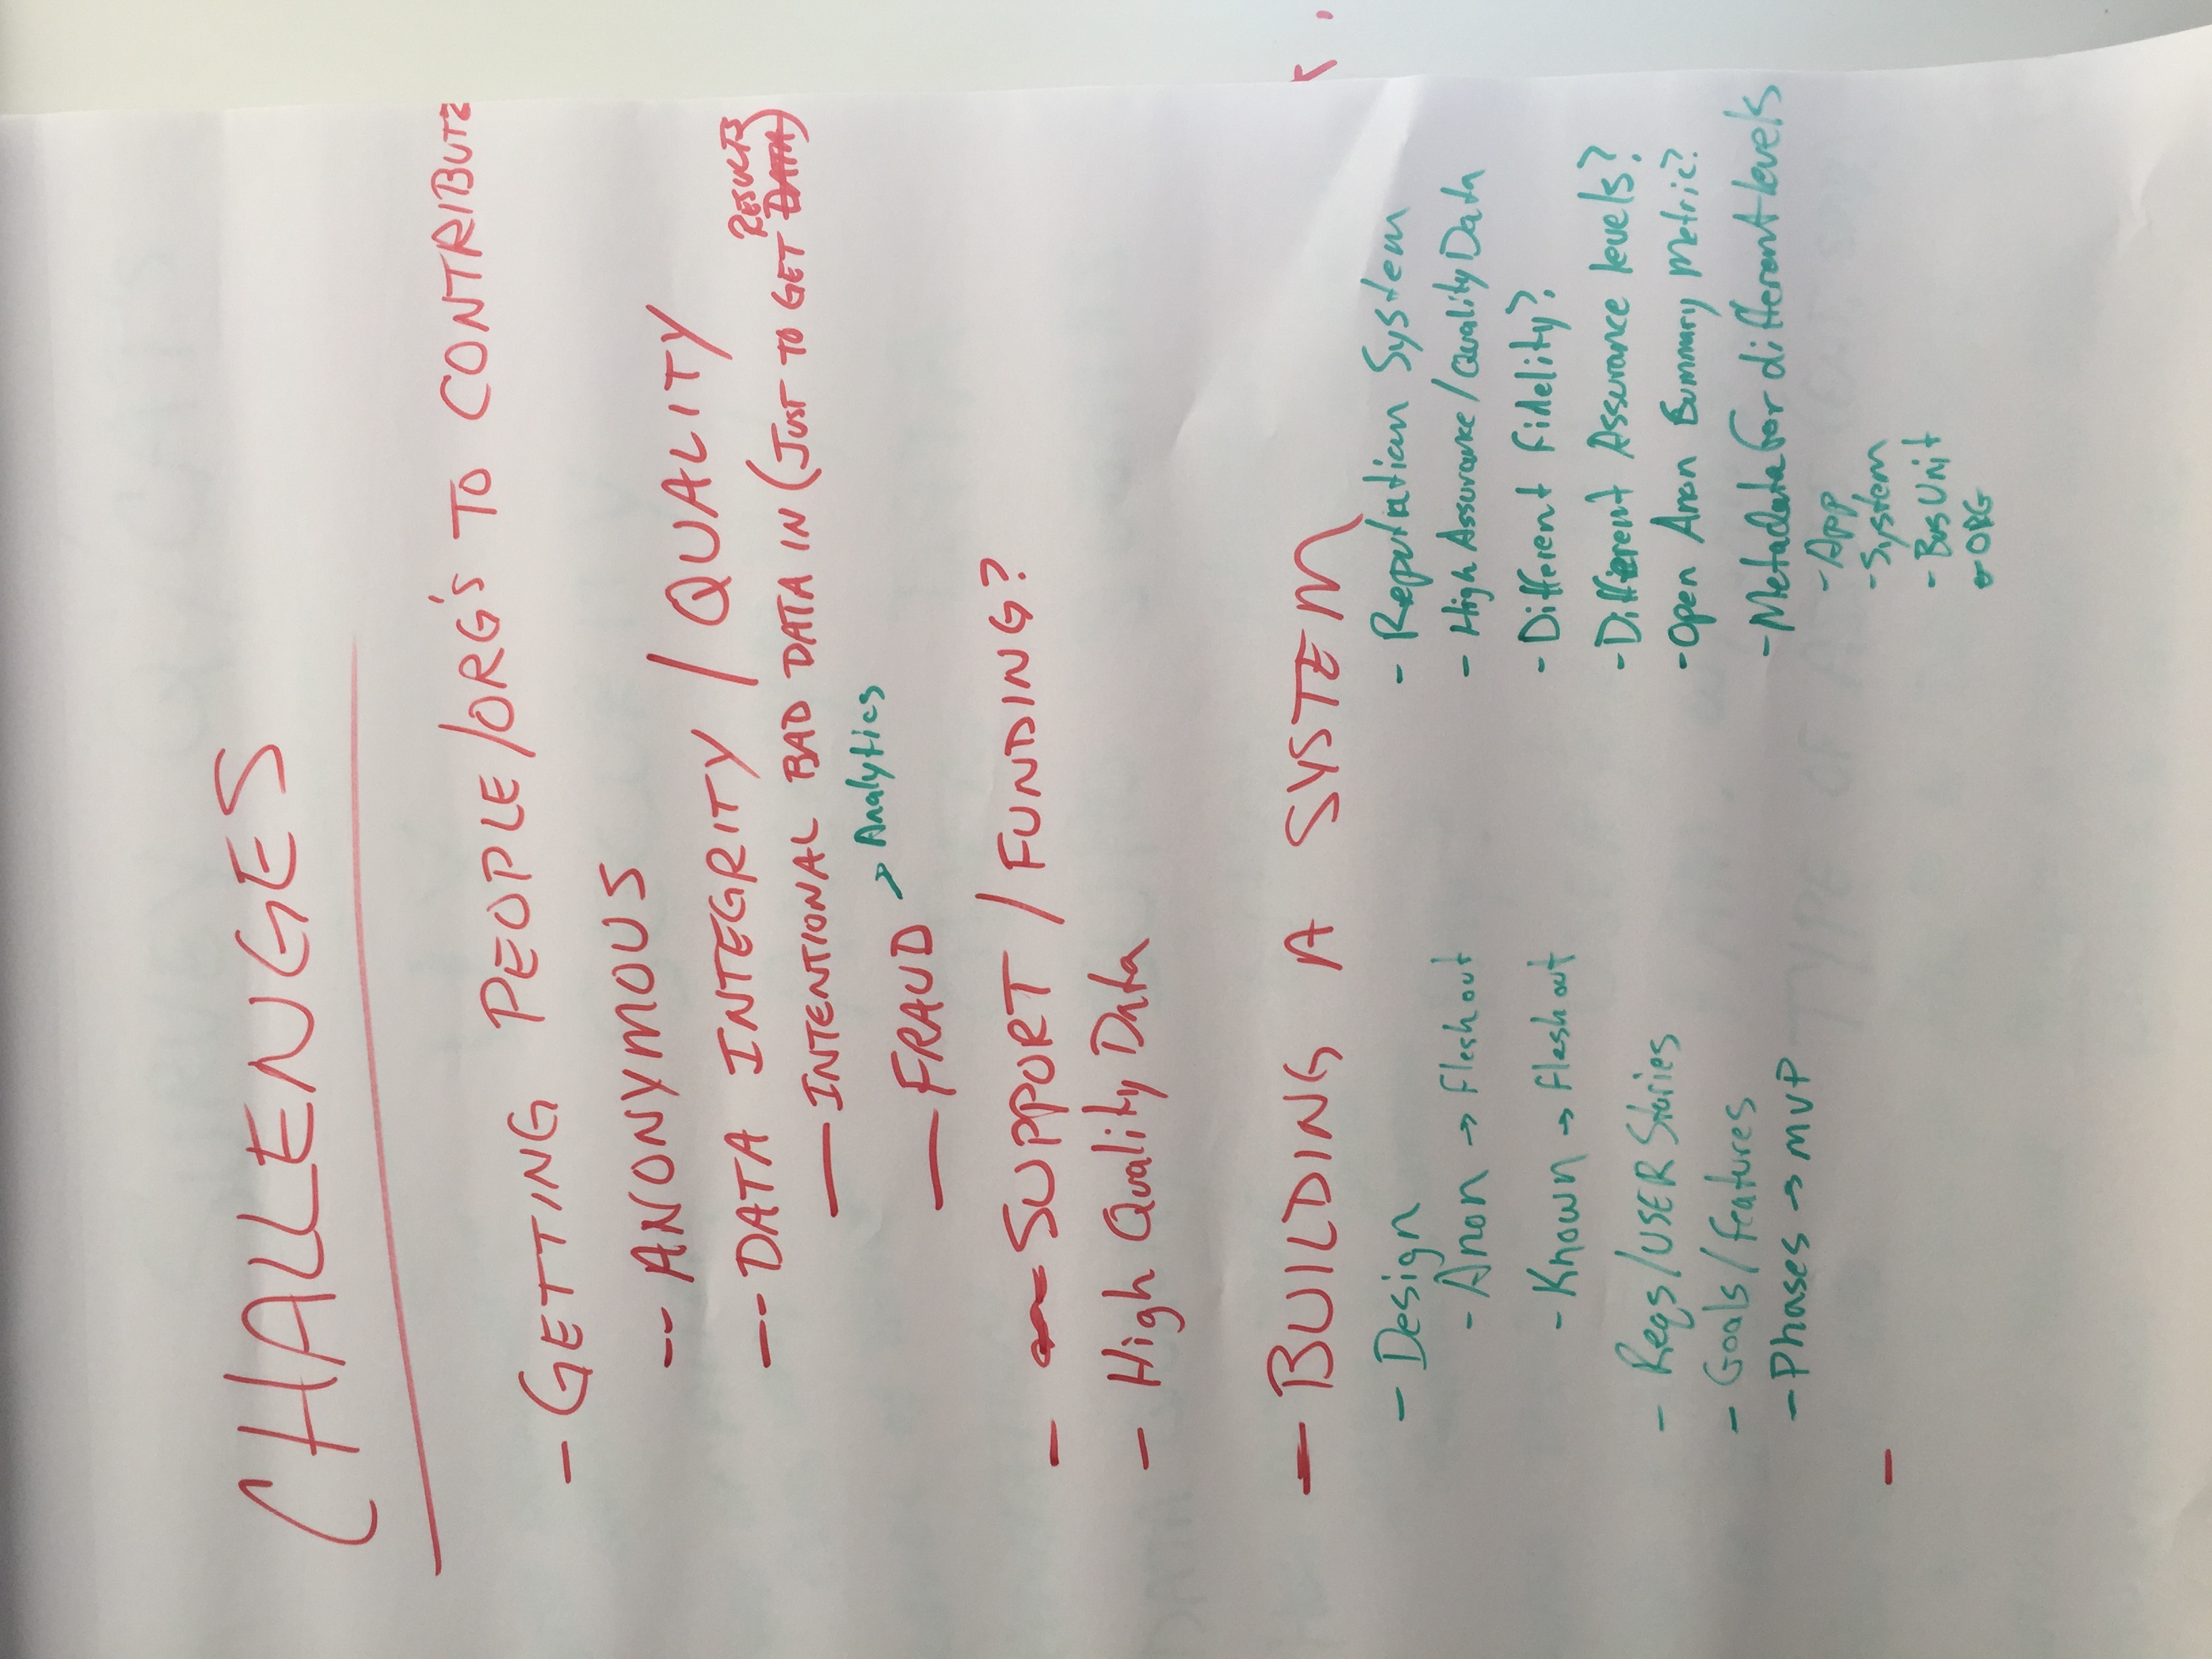 CHALLENGES
- GETTING PEOPLE/ORG'S TO CONTRIBUTE
-- ANONYMOUS
-- DATA INTEGRITY / QUALITY
RESULTS
— INTENTIONAL BAD DATA IN (JUST TO GET DATA)
— FRAUD → Analytics
- — SUPPORT / FUNDING?
- High Quality Data
- BUILDING A SYSTEM
- Design
- Anon → Flesh out
- Known → Flesh out
- Reqs/USER Stories
- Goals/features
- Phases → MVP
-
- Reputation System
- High Assurance/Quality Data
- Different Fidelity?
- Different Assurance levels?
- Open Anon Summary Metric?
- Metadata for different levels
- App
- System
- Bus Unit
- ORG